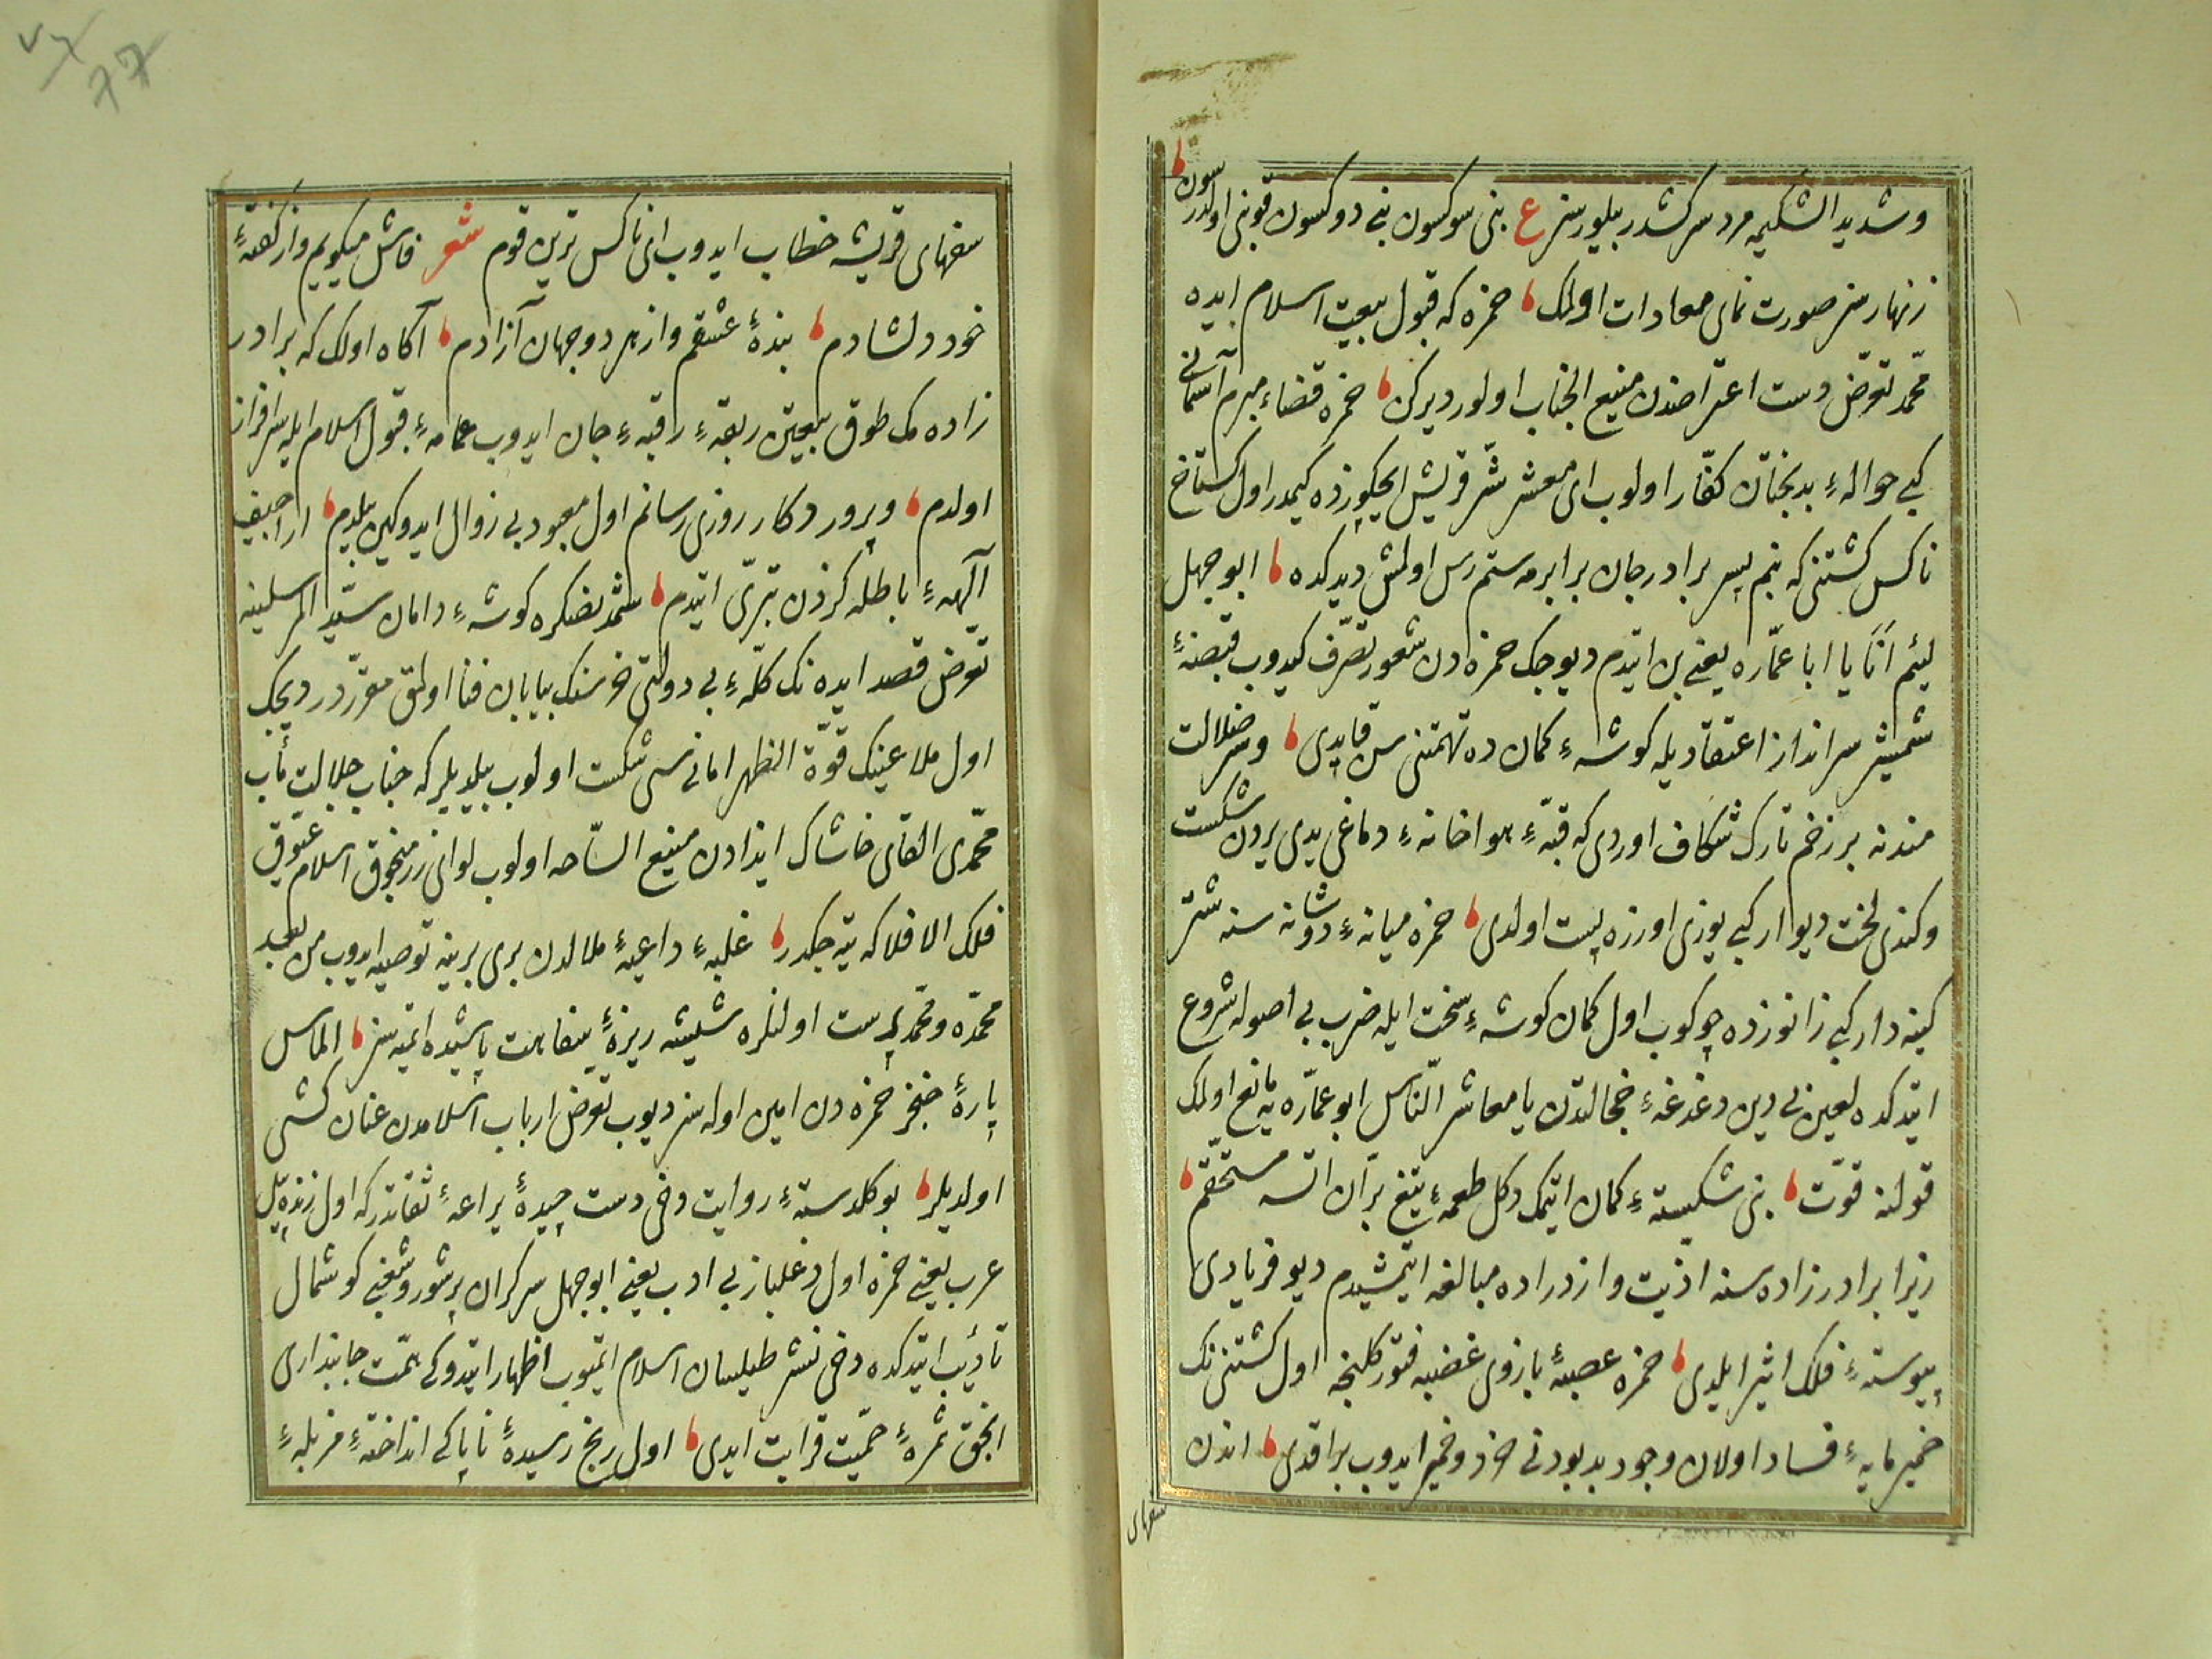 وشدید الشکیمه مرد سرکشدر بیلورسز ع بنی سوکسون بنی دوکسون قوبنی اولدرسون
زنهار سز صورت نمای معادات اولمک حمزه که قبول بیعت اسلام ایده
محمّد تعرّض دست اعتراضدن منیع الجناب اولور دیرکن حمزه قضاء مبرم آسمانی
کبی حوالهٔ بدبختان کفّار اولوب ای معشر شرّ قریش ایچکوزده کیمدر اول کستاخ
ناکس کشتنی که بنم پسر برادر جان برابرمه ستم رس اولمش دیدکده ابو جهل
لئیم انَا یا ابا عمّاره یعنی بن ایتدم دیوجک حمزه دن شعور تصرّف کیدوب قبضهٔ
شمشیر سرانداز اعتقادیله کوشهٔ کمان ده تهمتنی سن قاپدی وسر ضلالت
مندنه بر زخم تارک شکاف اوردی که قبّهٔ هواخانهٔ دماغی یدی یردن شکست
وکندی لخت دیوار کبی یوزی اوزره پست اولدی حمزه میانهٔ دوشانه سنه شتر
کینه دار کبی زانوزده چوکوب اول کمان کوشهٔ سخت ایله ضرب بی اصوله شروع
ایتدکده لعین بی دین دغدغهٔ خجالتدن یا معاشر النّاس ابو عمّاره یه مانع اولمک
قولنه قوّت بنی شکستهٔ کمان ایتمک دکل طعمهٔ تیغ برّان اتسه مستحقّم
زیرا برادر زاده سنه اذیت وازدراده مبالغه ایتمشیدم دیو فریادی
پیوستهٔ فلک اثیر ایلدی حمزه عصبهٔ بازوی غضبه فتور کلنجه اول کشتنی نک
خمیر مایهٔ فساد اولان وجود بدبودنی خرد وخمیر ایدوب براقدی اندن
سفهای
سفهای قریشه خطاب ایدوب ای ناکس ترین قوم شعر فاش میکویم واز کفتهٔ
خود دلشادم بندهٔ عشقم واز هر دو جهان آزادم آکاه اولک که برادر
زاده مک طوق بیعتین ربقهٔ رقبهٔ جان ایدوب عمامهٔ قبول اسلام ایله سرافراز
اولدم وپروردکار روزی رسانم اول معبود بی زوال ایدوکین بیلدم اراجیف
آلههٔ باطله کزدن تبرّی ایتدم شمد نصکره کوشهٔ دامان سیّد المرسلینه
تعرّض قصد ایده نک کلّهٔ بی دولتی خرسنک بیابان فنا اولمق مقرّردر دیجک
اول ملاعینک قوّة الظهر امانی سی شکست اولوب بیلدیلر که جناب جلالت مآب
محمّدی القای خاشاک ایذادن منیع السّاحه اولوب لوای زر منجوق اسلام عیّوق
فلک الافلاکه یتیجکدر غلبهٔ داعیهٔ ملالدن بری برینه توصیه ایدوب من بعد
محمّده ومحمّد پرست اولنلره شیشه ریزهٔ سفاهت پاشیده ایتمه سز الماس
پارهٔ خنجر حمزه دن امین اوله سز دیوب تعرّض ارباب اسلامدن عنان کش
اولدیلر بو کلدستهٔ روایت دخی دست چیدهٔ براعهٔ ثقاتدر که اول زنده پیل
عرب یعنی حمزه اول دغلباز بی ادب یعنی ابو جهل سرکران پر شور وشغبی کوشمال
تأدیب ایتدکده دخی نشر طیلسان اسلام ایتمیوب اظهار ایتدوکی همّت جانبداری
انجق ثمرهٔ حمیّت قرابت ایدی اول رنج رسیدهٔ ناپاکی انداختهٔ مزبلهٔ